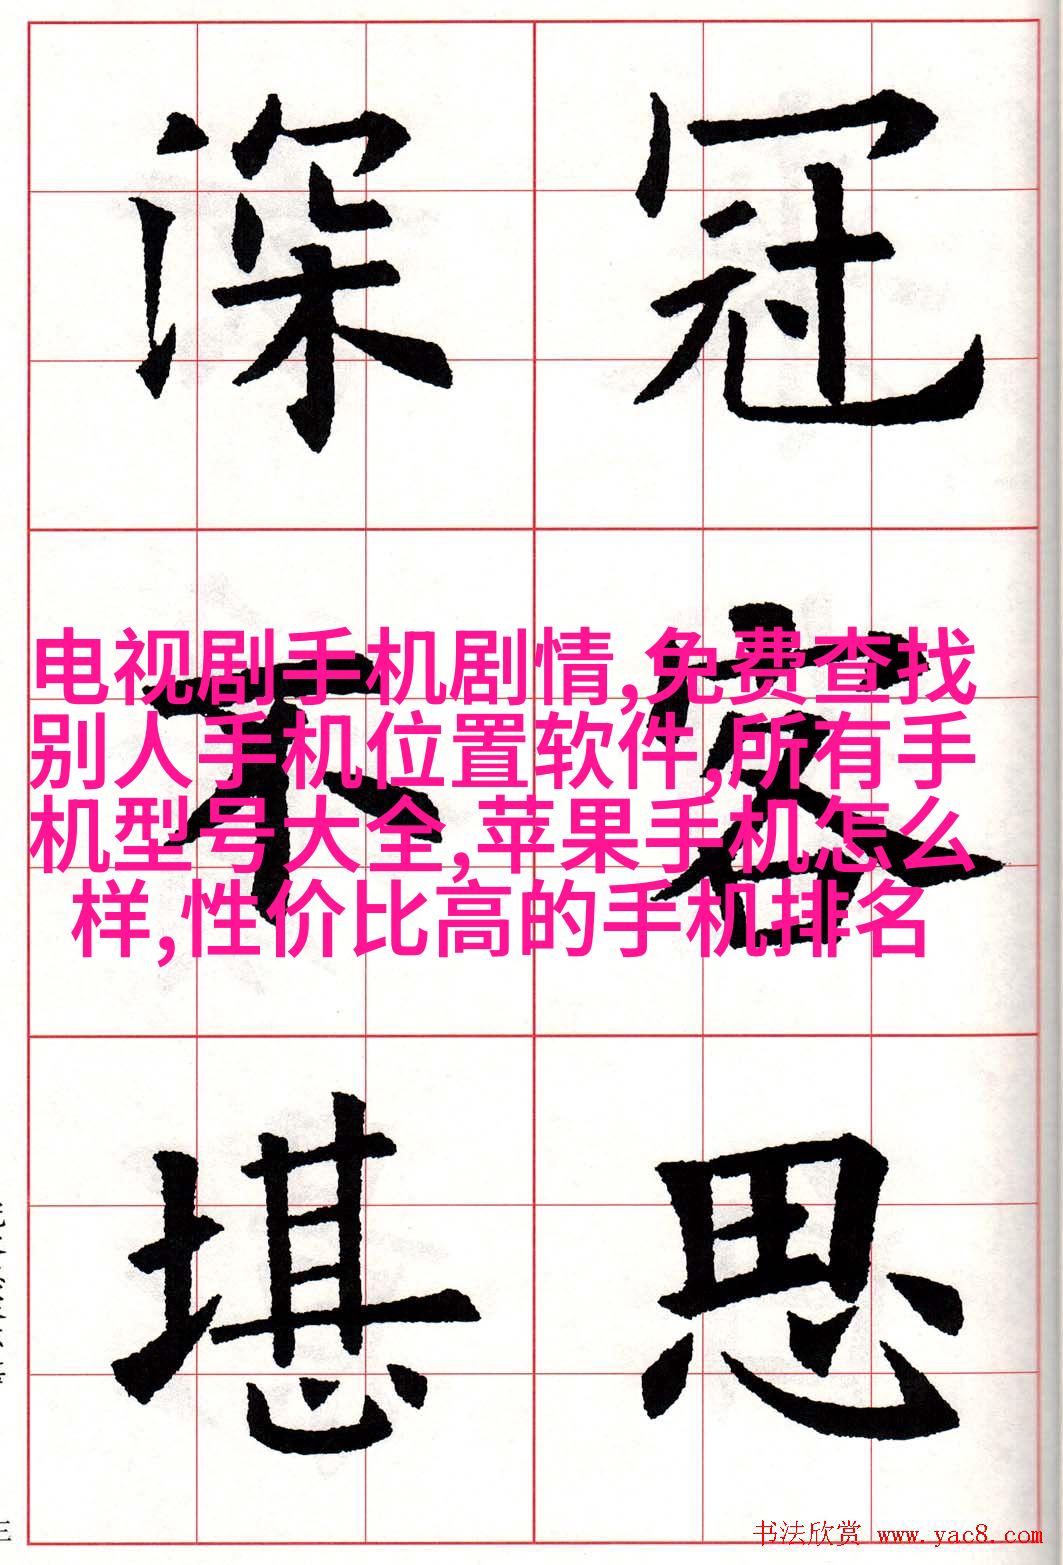 深冠
不容
堪思
电视剧手机剧情,免费查找
别人手机位置软件,所有手
机型号大全,苹果手机怎么
样,性价比高的手机排名
三
书法欣赏 www.yac8.com